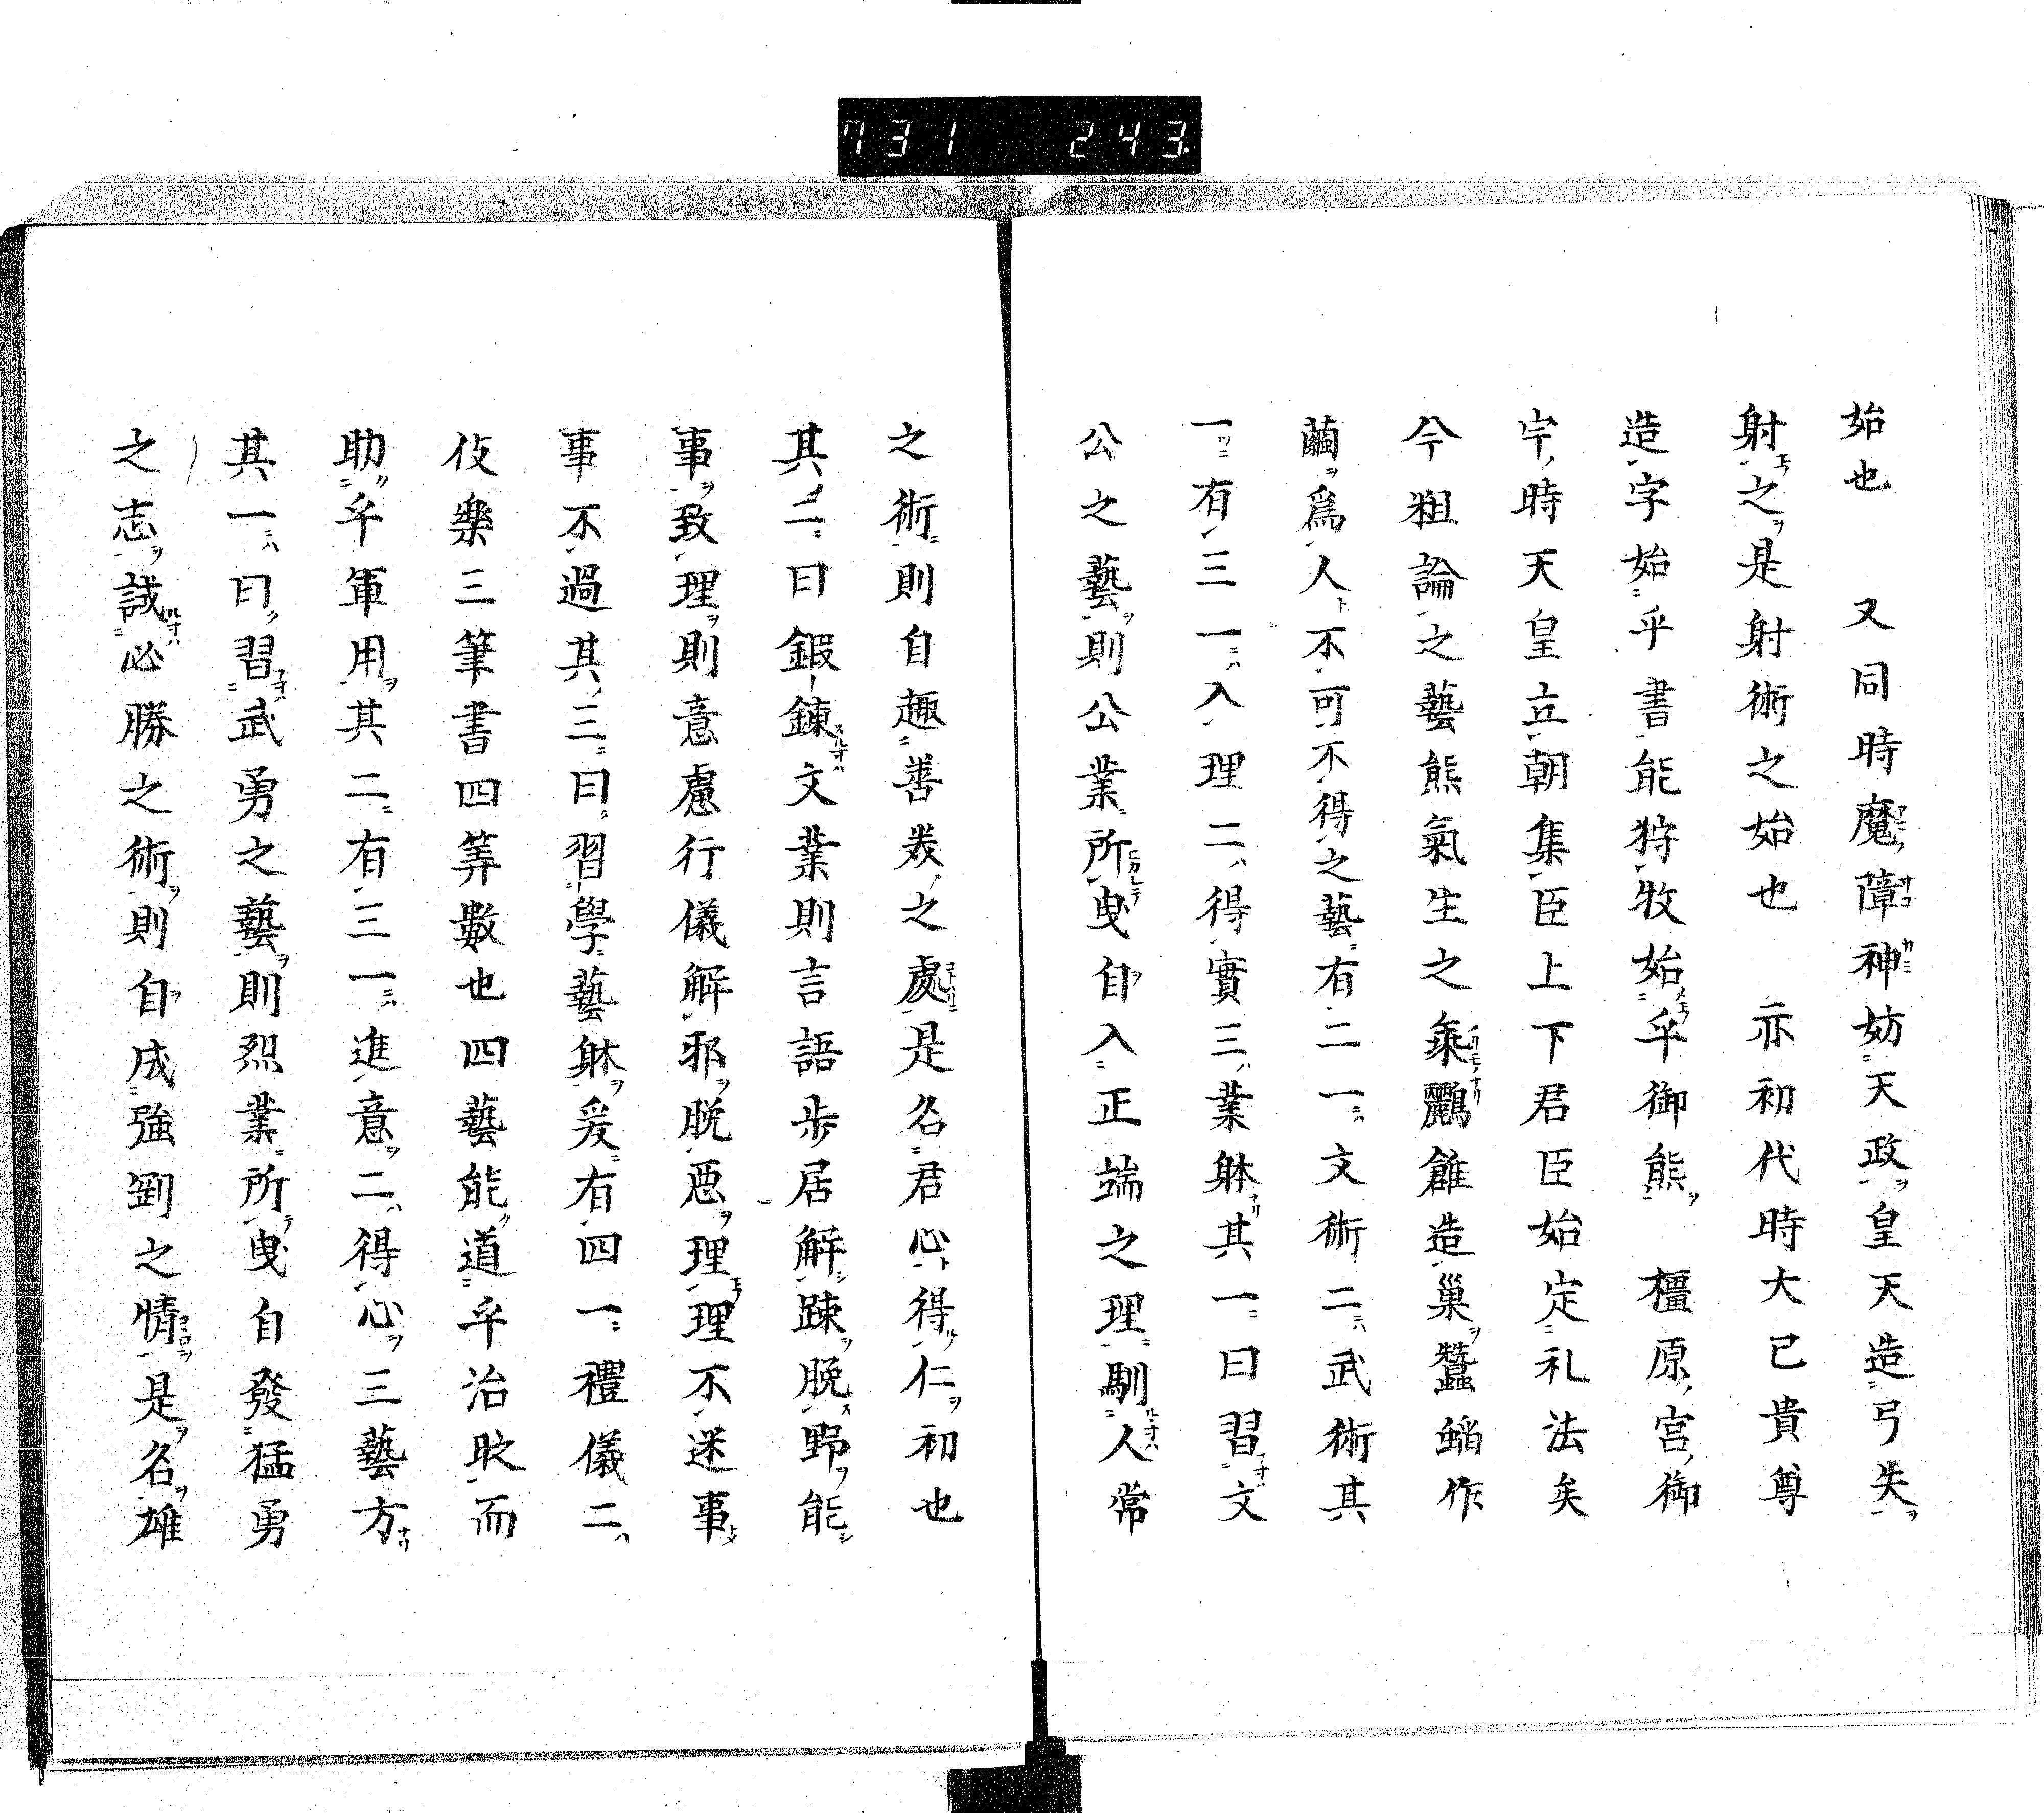 731 243
始也 又同時魔障神妨天政皇天天造弓矢
射之是射術之始也 亦初代時大己貴尊
造字始乎書能狩牧始乎御熊 橿原宮御
宇時天皇立朝集臣上下君臣始定礼法矣
今粗論之藝熊氣生之氣鸝雖造巢蠶蛹作
繭為人不可不得之藝有二一文術二武術其
一有三一入理二得實三業躰其一曰習文
公之藝則公業所曳自入正端之理馴人常
之術則自趣善美之處是名君心得仁初也
其二曰鍛錬文業則言語歩居解踈脱野能
事致理則意慮行儀解邪脱惡理理不迷事
事不過其三曰習學藝躰爰有四一禮儀二
伎樂三筆書四筭數也四藝能道乎治政而
助乎軍用其二有三一進意二得心三藝方
其一曰習武勇之藝則烈業所曳自發猛勇
之志誠必勝之術則自成強剄之情是名雄